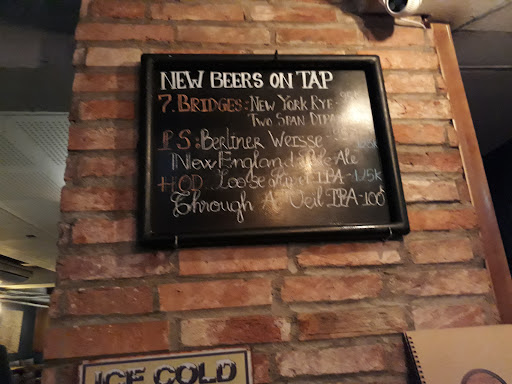 NEW BEERS ON TAP
7. BRIDGES: NEW YORK RYE -
TWO SPAN DIPA
P S: BERLINER WEISSE -
New England Pale Ale
H.O.D. Loose Lips IPA - 125K
Through A Veil IPA - 100
ICE COLD